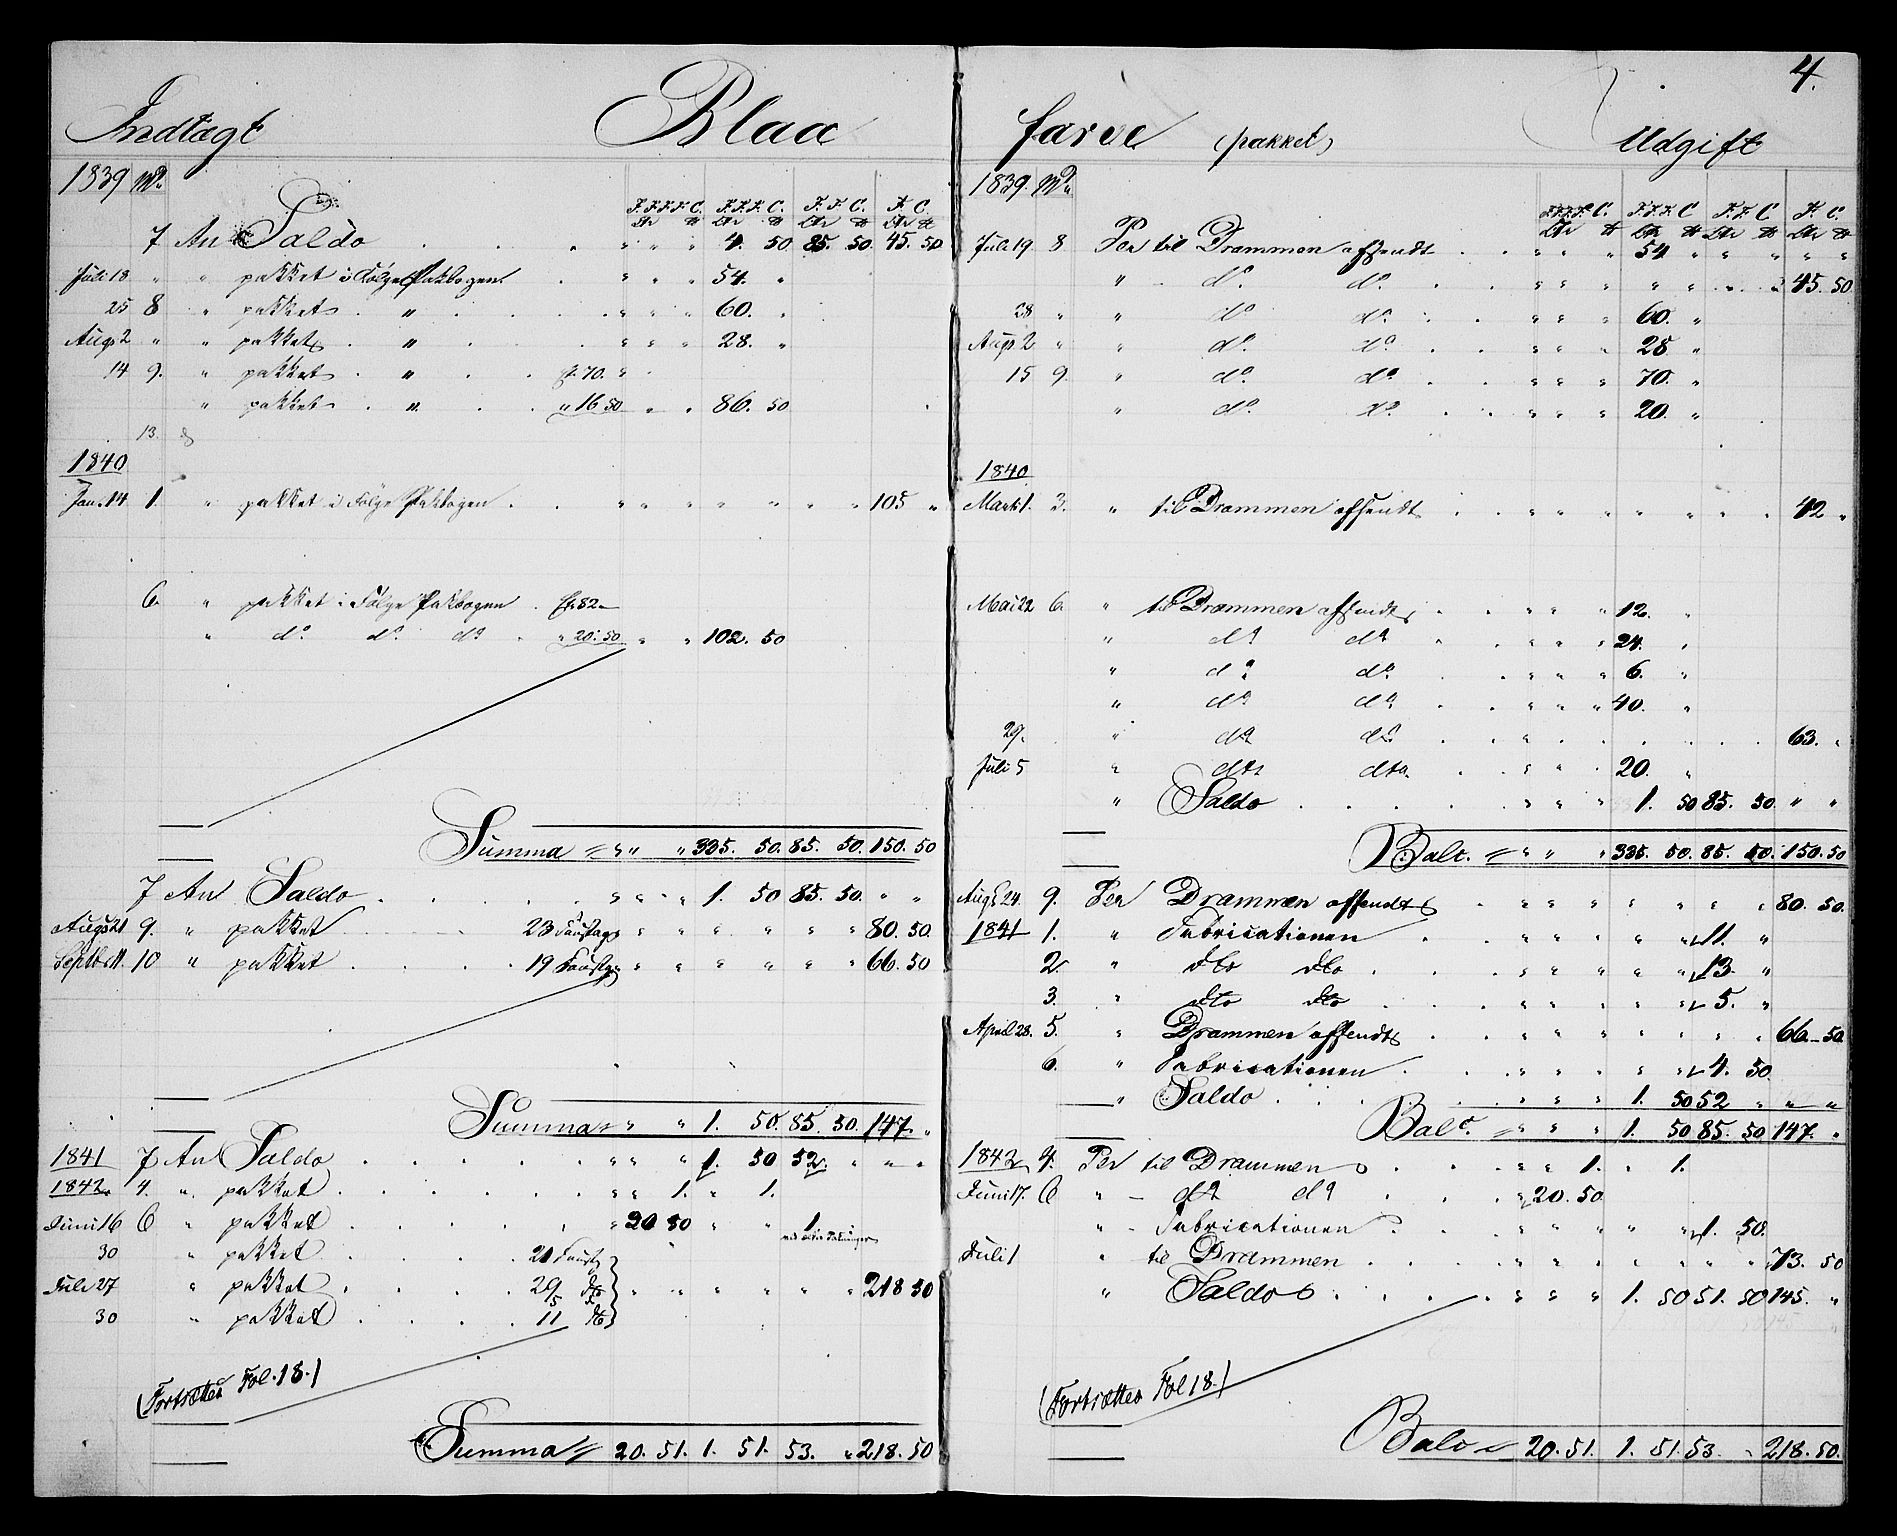 4.
Indtægt Blaa
1839 Mº
F.F.F.F.C. F.F.F.C. F.F.C. F.C.
7 An Saldo 4. 50. 85. 50. 45. 50
Juli 18 " " pakket i Følge Pakbogen " " " 54. "
25 8 " pakket " 60. "
Augs 2 " " pakket " 28. "
14 9. " pakket " 70.
" pakket " " 16 50 " " 86. 50
13.
1840
Jan. 14 1. " pakket i Følge Pakbogen 105 "
6. " pakket i Følge Pakbogen 82
" dº dº dº " 20. 50 " " 102. 50
Summa " " " 335. 50. 85. 50. 150. 50
7 An Saldo " " " 1. 50 85. 50. " "
Augs 21 9. " pakket 23 80. 50.
Septbr 11. 10 " pakket 19 66. 50
Summa " " 1. 50. 85. 50. 147. "
1841 7 An Saldo " " " 1. 50 52. " " "
1842. 4. " pakket " " 1. " 1.
Juni 16 6 " pakket " 20 50 " " 1
30 " pakket 21
Juli 27 " pakket 29 dto 218 50
30 " pakket 11 dto
(Fortsættes Fol. 18.)
Summa 20. 51. 1. 51. 53. " 218. 50
farve (pakket) Udgift
1839. Mº
F.F.F.F.C. F.F.F.C F.F.C F.C.
Juli 19. 8 Per til Drammen afsendt " " " 54 " " " " "
" dº dº 45. 50.
28 " " dº dº " " " 60. "
Augs 2 " " dº dº " " " 28 "
15 9. " dº dº " " " 70. "
" dº dº " " " 20. "
1840
Marts 1. 3. " til Drammen afsendt 42 "
Mai 22 6. " til Drammen afsendt " " " 12. "
" dº dº " " " 24. "
" dº dº " " " 6. "
" dº dº " " " 40. "
29. " dº dº 63. "
Juli 5 " dto dto 20. "
" Saldo " " " 1. 50 85. 50. " "
Balc. " " " 335. 50. 85. 50. 150. 50
Augs 24. 9. Per Drammen afsendt 80. 50.
1841 1. " Fabricationen 11. "
2 " dto dto 13. "
3. " dto dto 5. "
April 28. 5. " Drammen afsendt 66. 50.
6. " Fabricationen 4. 50.
" Saldo " " " 1. 50 52 " " "
Balc. " " " 1. 50 85. 50 147. "
1842 4. Per til Drammen " " 1. " 1.
Juni 17. 6 " dº dº " 20. 50.
" Fabricationen 1. 50.
Juli 1 " til Drammen 73. 50
" Saldo " " " 1. 50 51. 50 145. "
(Fortsættes Fol 18.)
Balc 20. 51. 1. 51. 53. " 218. 50.